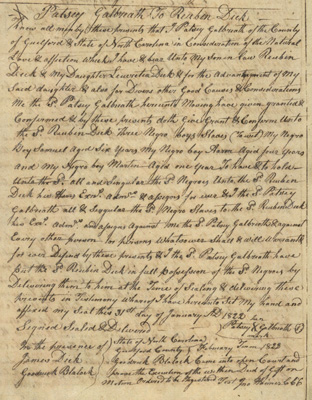 Patsey Galbreath To Reuben Dick
Know all men by these presents that I Patsey Galbreath of the County
of Guilford & State of North Carolina in Consideration of the Natural
Love & affection which I have & bear Unto My Son in law Reuben
Dick & My Daughter & for the Advancement of My
Said daughter & also for Divers other Good Causes & Considerations
Me the Sd. Patsey Galbreath hereunto Moving have given granted &
Confirmed & by these presents doth Give Grant & Confirm Unto
the Sd. Reuben Dick Three Negro boys Slaves (to wit) My Negro
Boy Samuel Aged Six Years My Negro boy Aaron Aged five Years
and My Negro boy Martin Aged one Year To have & to hold
Unto the Sd. all and Singular the Sd. Negroes Unto the Sd. Reuben
Dick his Heirs Exrs. Admrs. & assigns for ever & I the Sd. Patsey
Galbreath all & Singular the Sd. Negro Slaves to the Sd. Reuben Dick
his Exrs. Admrs. and assigns Against Me the Sd. Patsey Galbreath & against
Every other person or persons Whatsoever Shall & will Warrant &
for ever Defend by these presents & I the Sd. Patsey Galbreath have
Put the Sd. Reuben Dick in full Possession of the Sd. Negroes by
Delivering them to him at the Time of Sealing & delivering these
Presents in Testimony whereof I have hereunto Set My hand and
affixed my Seal this 31st day of January AD 1822 her
Signed Sealed & Delivered Patsey X Galbreath
In the presence of mark
State of North Carolina
Guilford County February Term 1823
James Dick
Goodwick Blalock
Goodwick Blalock Came into open Court and
proved the Execution of the within Deed of Gift on
Motion Ordered to be Registered Test Jno Hanner C C C